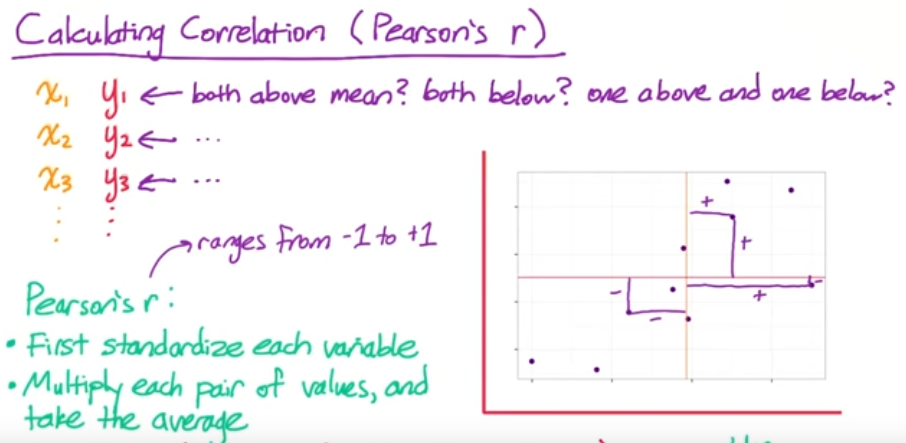 Calculating Correlation (Pearson's r)
x₁ y₁ ← both above mean? both below? one above and one below?
x₂ y₂ ← ...
x₃ y₃ ← ...
ranges from -1 to +1
Pearson's r:
• First standardize each variable
• Multiply each pair of values, and
take the average
+
+
-
-
+
-